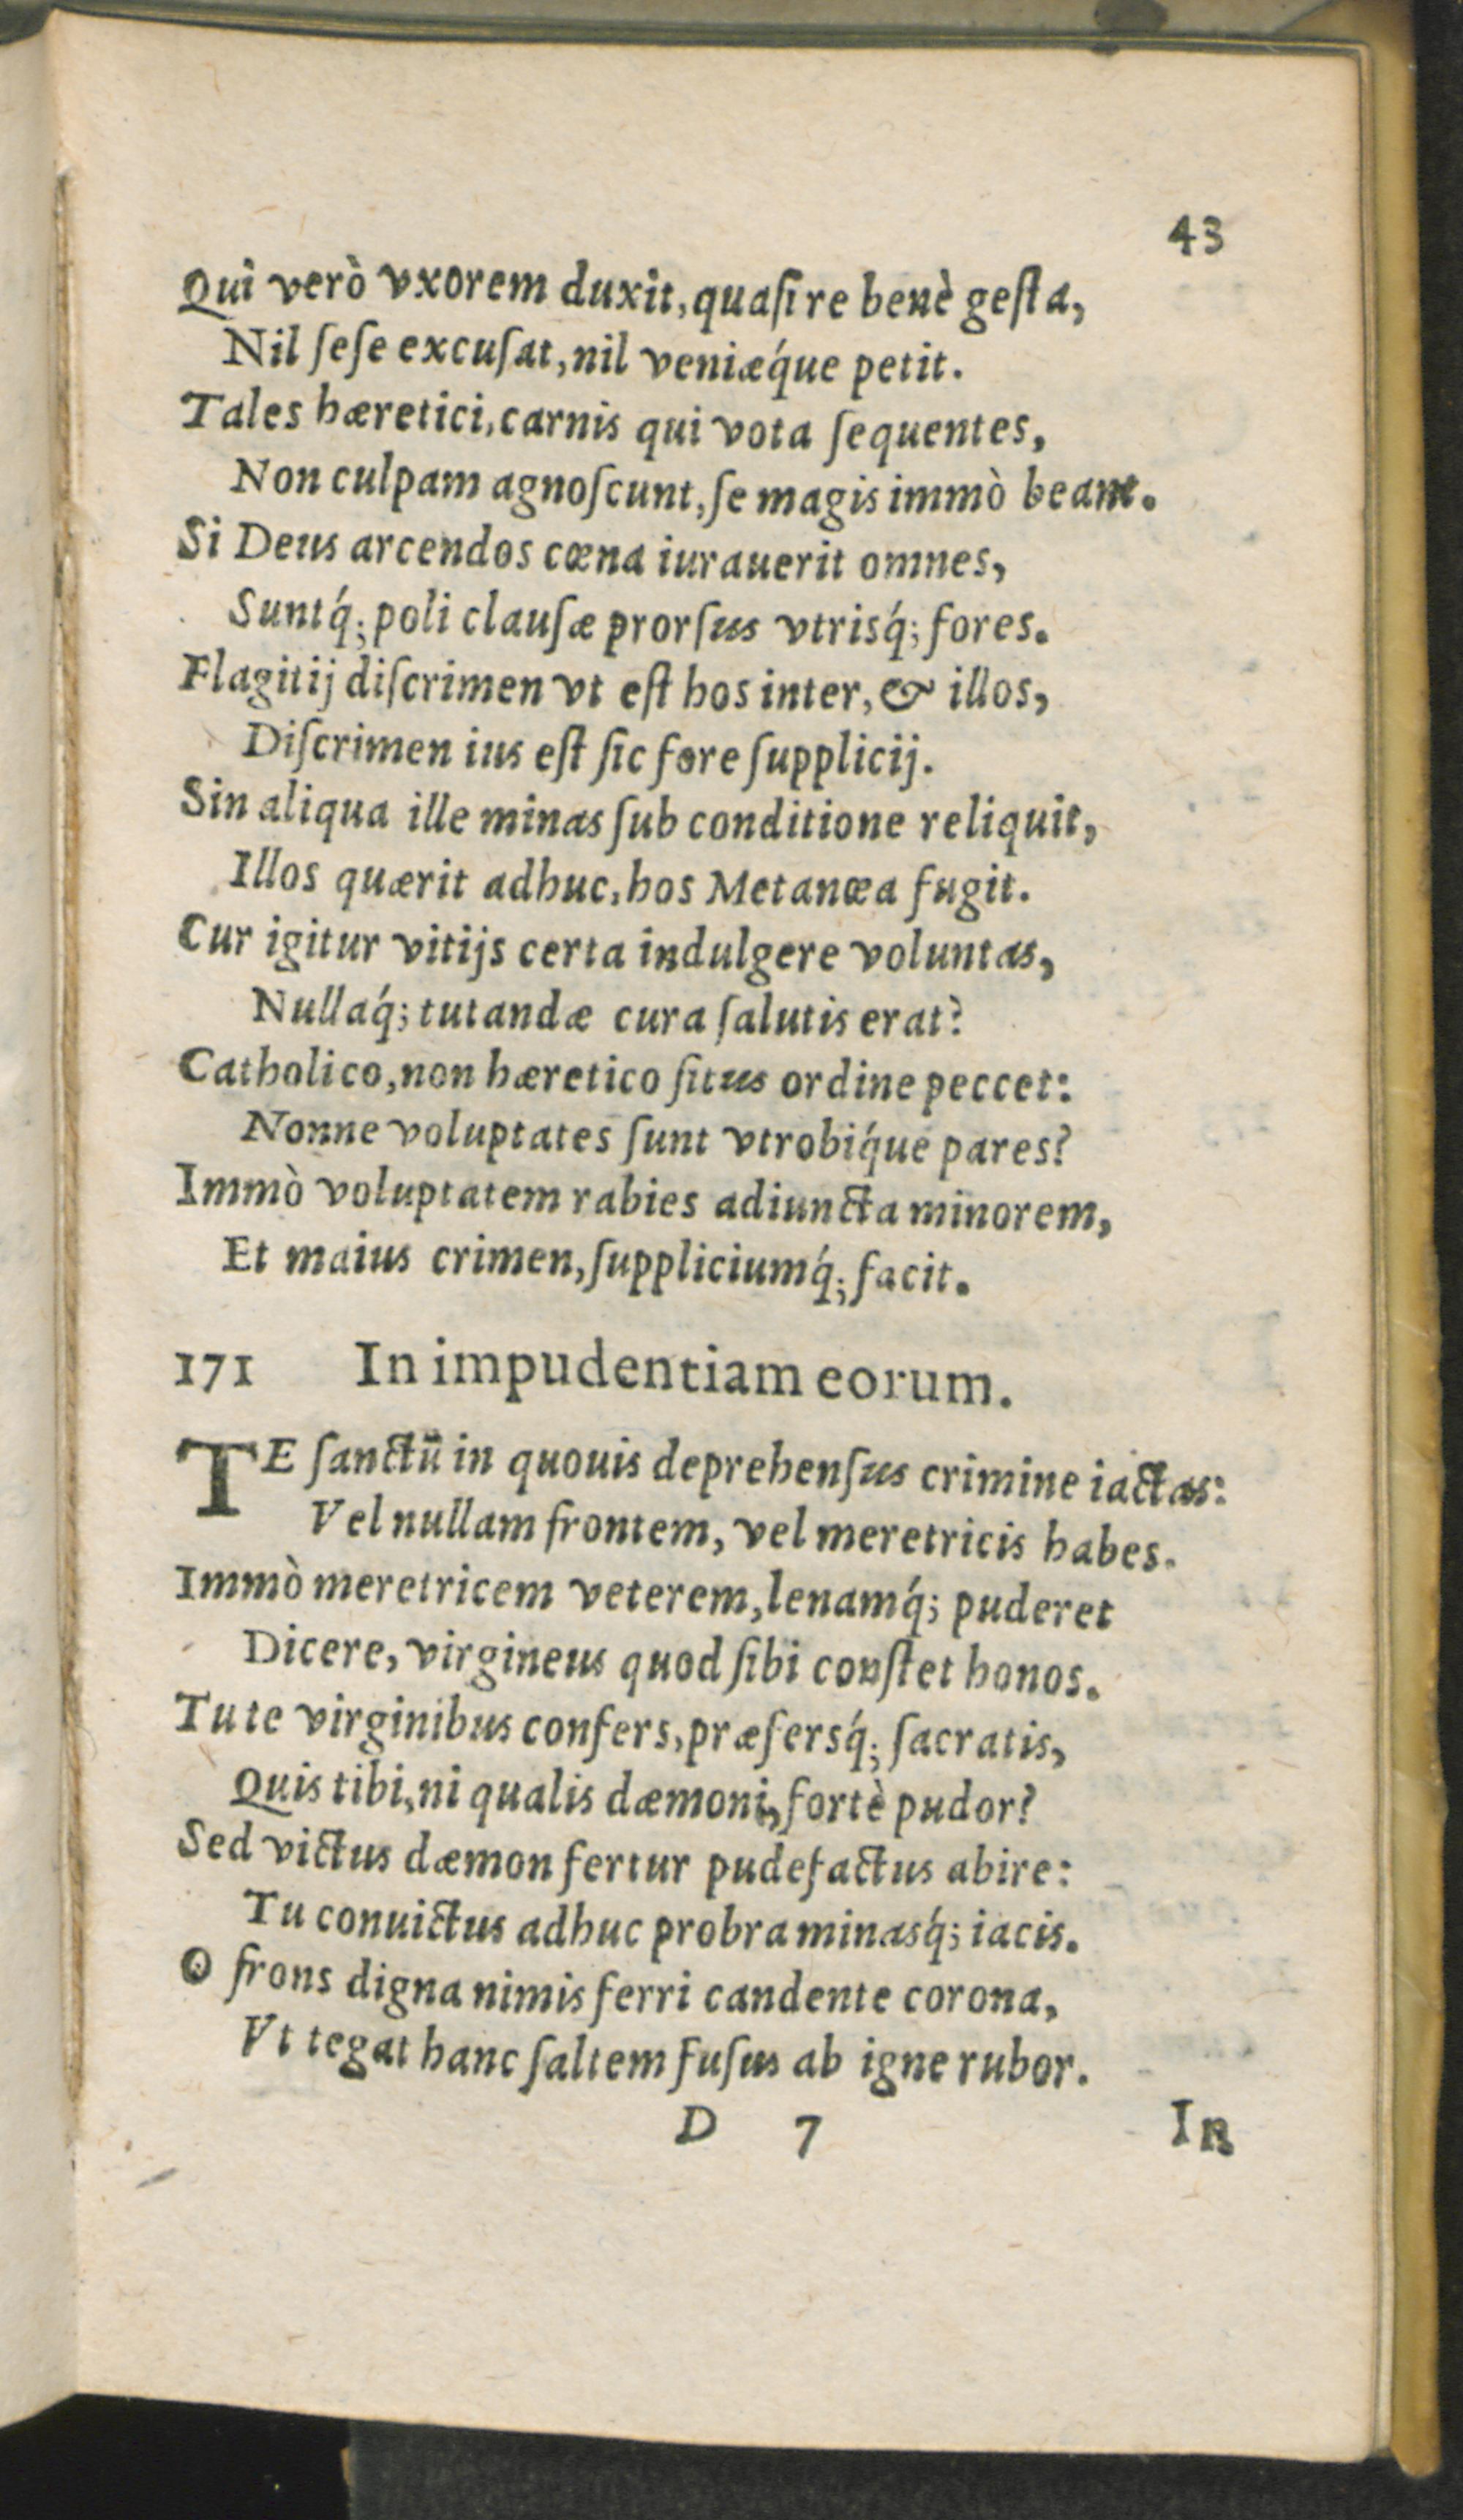 43
Qui verò vxorem duxit, quaſi re benè geſta,
Nil ſeſe excuſat, nil veniæq́ue petit.
Tales hæretici, carnis qui vota ſequentes,
Non culpam agnoſcunt, ſe magis immò beant.
Si Deus arcendos cœna iurauerit omnes,
Suntq́; poli clauſæ prorſus vtrisq́; fores.
Flagitij diſcrimen vt eſt hos inter, & illos,
Diſcrimen ius eſt ſic fore ſupplicij.
Sin aliqua ille minas ſub conditione reliquit,
Illos quærit adhuc, hos Metanœa fugit.
Cur igitur vitijs certa indulgere voluntas,
Nullaq́; tutandæ cura ſalutis erat?
Catholico, non hæretico ſitus ordine peccet:
Nonne voluptates ſunt vtrobiq́ue pares?
Immò voluptatem rabies adiuncta minorem,
Et maius crimen, ſuppliciumq́; facit.
171 In impudentiam eorum.
TE ſanctū in quouis deprehenſus crimine iactas:
Vel nullam frontem, vel meretricis habes.
Immò meretricem veterem, lenamq́; puderet
Dicere, virgineus quod ſibi conſtet honos.
Tu te virginibus confers, præfersq́; ſacratis,
Quis tibi, ni qualis dæmoni, fortè pudor?
Sed victus dæmon fertur pudefactus abire:
Tu conuictus adhuc probra minasq́; iacis.
O frons digna nimis ferri candente corona,
Vt tegat hanc ſaltem fuſus ab igne rubor.
D 7 In